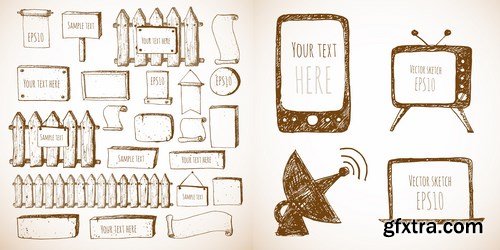 EPS10
SAMPLE TEXT
YOUR TEXT HERE
YOUR TEXT HERE
EPS10
EPS10
SAMPLE TEXT
SAMPLE TEXT
YOUR TEXT HERE
SAMPLE TEXT
YOUR TEXT HERE
YOUR TEXT
HERE
VECTOR SKETCH
EPS10
VECTOR SKETCH
EPS10
gfxtra.com